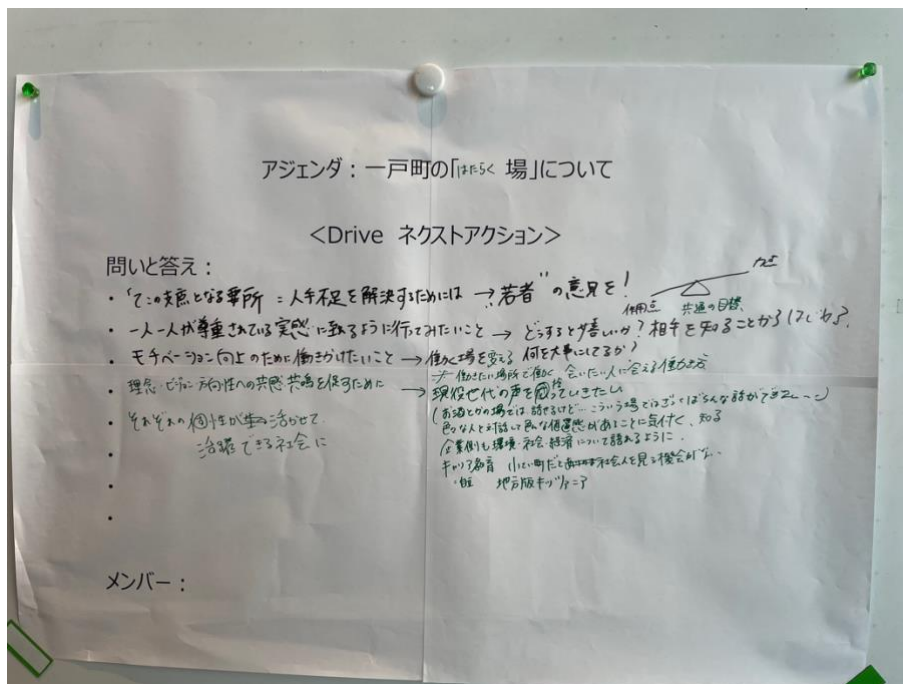 アジェンダ：一戸町の「はたらく 場」について
<Drive ネクストアクション>
問いと答え：
・「てこの支点となる要所 = 人手不足を解決するためには → "若者"の意見を！
力点
作用点 共通の目標
・一人一人が尊重されている実感に至るように行ってみたいこと → どうすると嬉しいか？相手を知ることからはじめる
・モチベーション向上のために働きかけたいこと → 働く場を変える 何を大事にしてるか？
働きたい場所で働く 会いたい人に会える働き方
・理念・ビジョン・方向性への共感 共鳴を促すために → 現役世代の声を拾っていきたい
(お酒とかの場では話せるけど… こういう場で
・それぞれの個性が 活かせて
色んな人と対話して色んな価値感があることに気付く、知る
・活躍できる社会に
企業側も環境・社会・経済について語れるように.
・キャリア教育 小さい町だと 社会人を見る機会が
地方版キッザニア
・
メンバー：